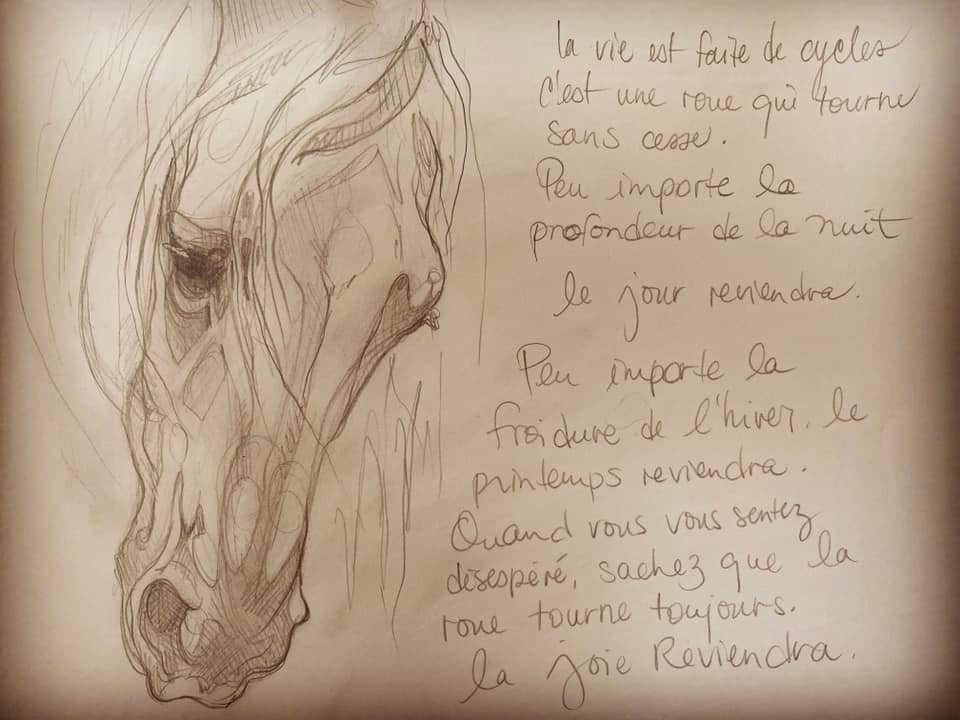 la vie est faite de cycles
c'est une roue qui tourne
sans cesse.
Peu importe la
profondeur de la nuit
le jour reviendra.
Peu importe la
froidure de l'hiver, le
printemps reviendra.
Quand vous vous sentez
désespéré, sachez que la
roue tourne toujours.
la joie Reviendra.